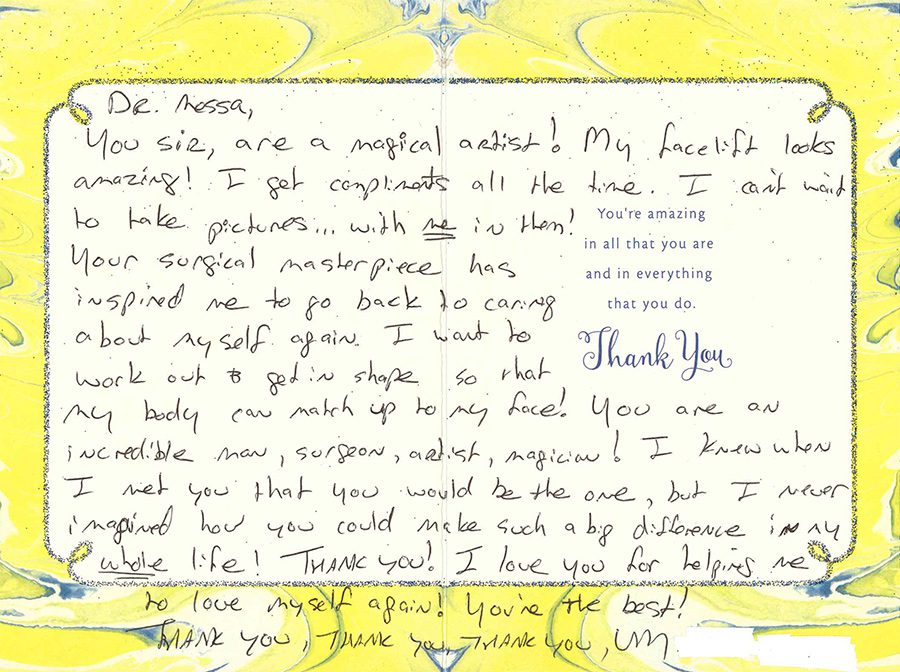 Dr. Messa,
You sir, are a magical artist! My facelift looks
amazing! I get compliments all the time. I can't wait
to take pictures... with me in them!
Your surgical masterpiece has
inspired me to go back to caring
about myself again. I want to
work out & get in shape so that
my body can match up to my face! You are an
incredible man, surgeon, artist, magician! I knew when
I met you that you would be the one, but I never
imagined how you could make such a big difference in my
whole life! THANK YOU! I love you for helping me
to love myself again! You're the best!
THANK YOU, THANK YOU, THANK YOU,
You're amazing
in all that you are
and in everything
that you do.
Thank You